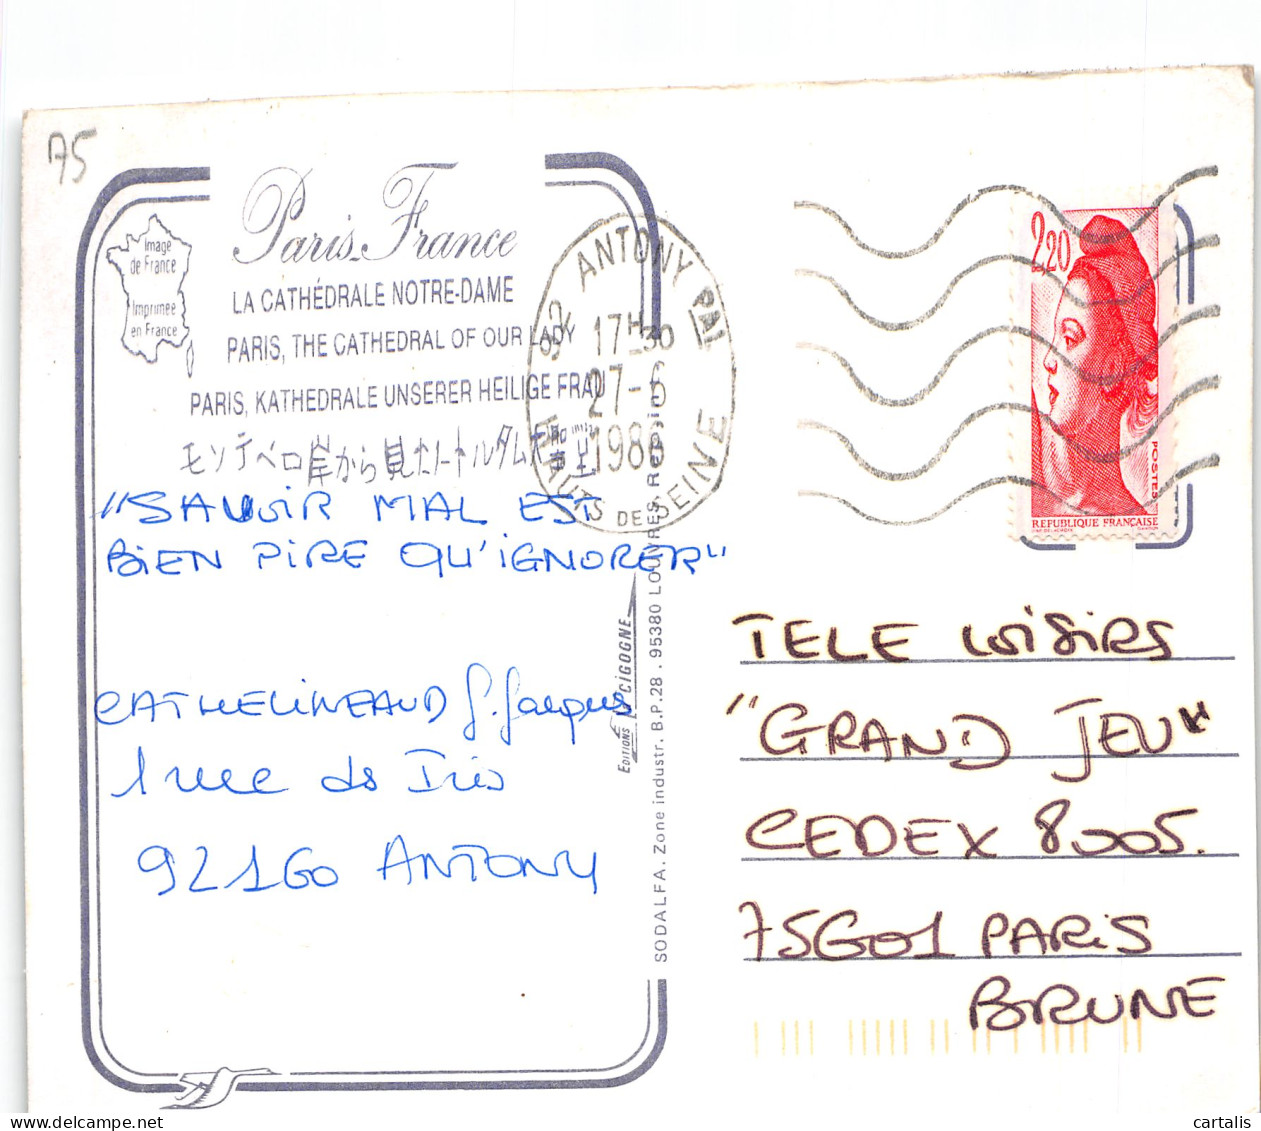 75
Paris-France
Image
de France
Imprimée
en France
LA CATHÉDRALE NOTRE-DAME
PARIS, THE CATHEDRAL OF OUR LADY
PARIS, KATHEDRALE UNSERER HEILIGE FRAU
モンテベロ岸から見たノートルダム大聖堂
92 ANTONY PAL
17H30
27-6
1986
HAUTS DE SEINE
2,20
POSTES
REPUBLIQUE FRANÇAISE
"SAVOIR MAL EST
BIEN PIRE QU'IGNORER"
CATHELINEAUD J. Jacques
1 rue des Iris
92160 ANTONY
EDITIONS CIGOGNE
SODALFA. Zone industr. B.P.28 . 95380 LOUVRES
TELE LOISIRS
"GRAND JEU"
CEDEX 8005.
75601 PARIS
BRUNE
cartalis